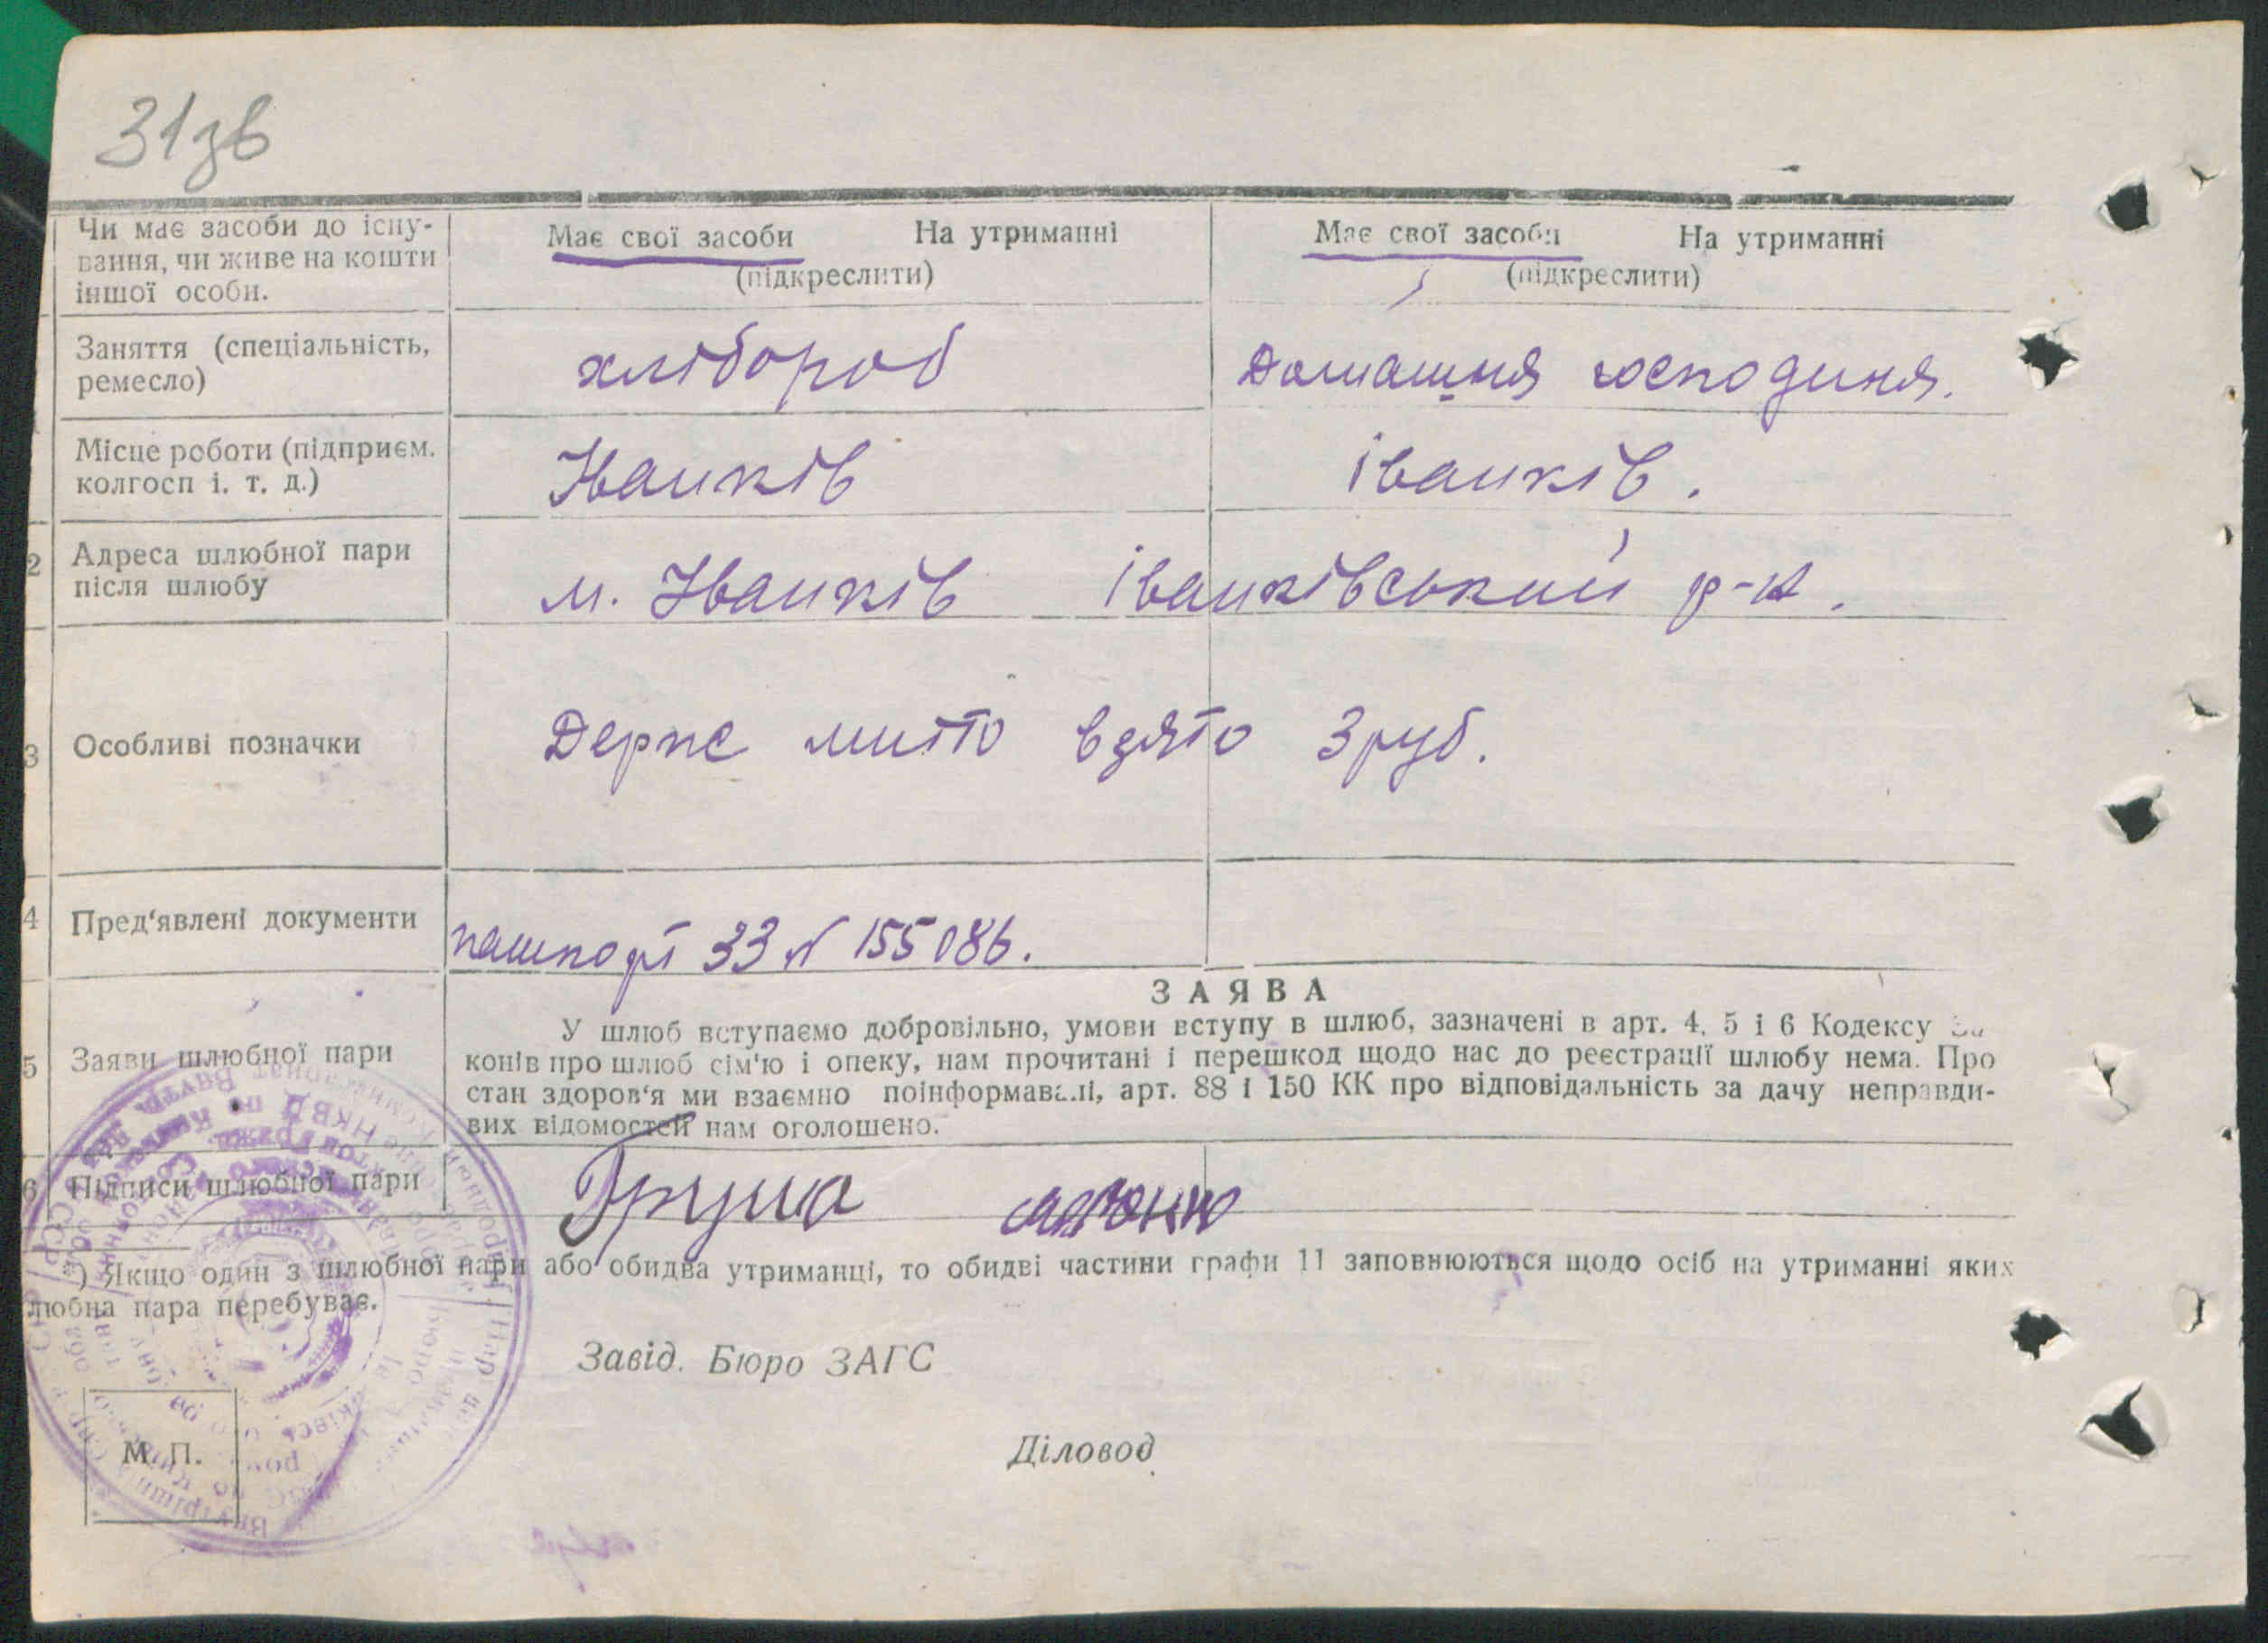 31зв
Чи має засоби до існу-
вання, чи живе на кошти
іншої особи.
Має свої засоби На утриманні
(підкреслити)
Має свої засоби На утриманні
(підкреслити)
Заняття (спеціальність,
ремесло)
хлібороб
Домашня господиня.
Місце роботи (підприєм.
колгосп і. т. д.)
Іванків
іванків.
2 Адреса шлюбної пари
після шлюбу
м. Іванків іванківський р-н.
3 Особливі позначки
Держ мито взято 3 руб.
4 Пред'явлені документи
пашпорт ЗЗ № 155086.
ЗАЯВА
5 Заяви шлюбної пари
У шлюб вступаємо добровільно, умови вступу в шлюб, зазначені в арт. 4, 5 і 6 Кодексу За
конів про шлюб сім'ю і опеку, нам прочитані і перешкод щодо нас до реєстрації шлюбу нема. Про
стан здоров'я ми взаємно поінформавалі, арт. 88 і 150 КК про відповідальність за дачу неправди-
вих відомостей нам оголошено.
6 Підписи шлюбної пари
Груша
*) Якщо один з шлюбної пари або обидва утриманці, то обидві частини графи 11 заповнюються щодо осіб на утриманні яких
любна пара перебуває.
Завід. Бюро ЗАГС
Діловод
М. П.